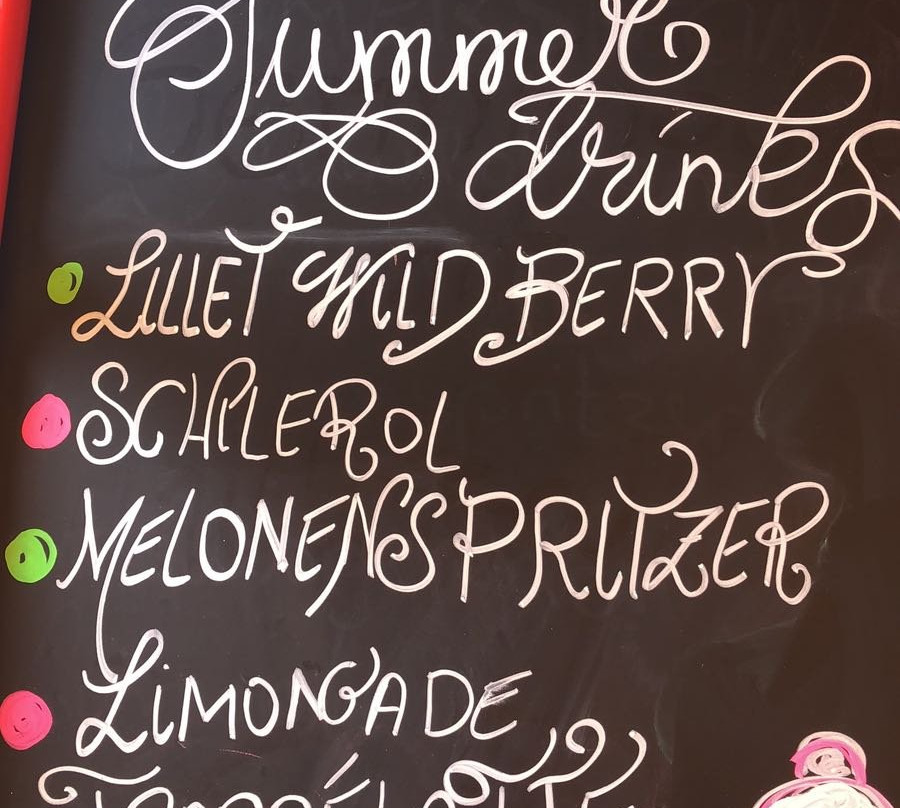 Summer
drinks
LILLET WILD BERRY
SCHPLEROL
MELONENSPRITZER
LIMONGADE